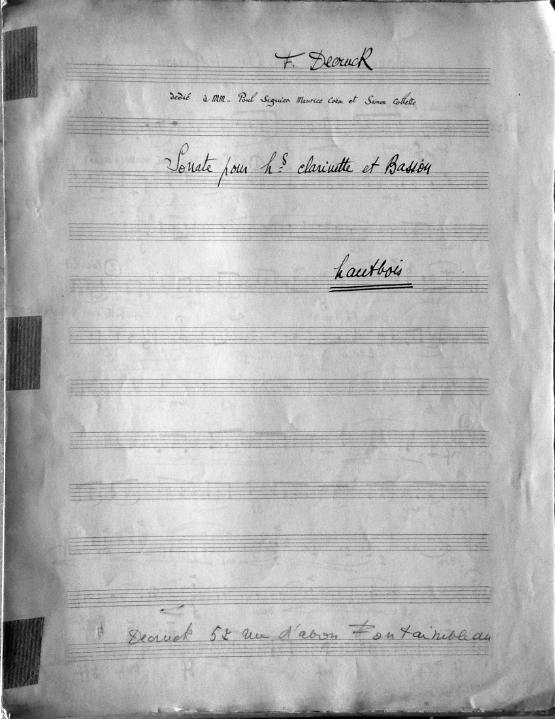 F. Decruck
dédié à MM. Paul Siguier Maurice Cora et Simon Collette
Sonate pour hᵇˢ clarinette et Basson
hautbois
Decruck 58 rue d'avon Fontainibleau